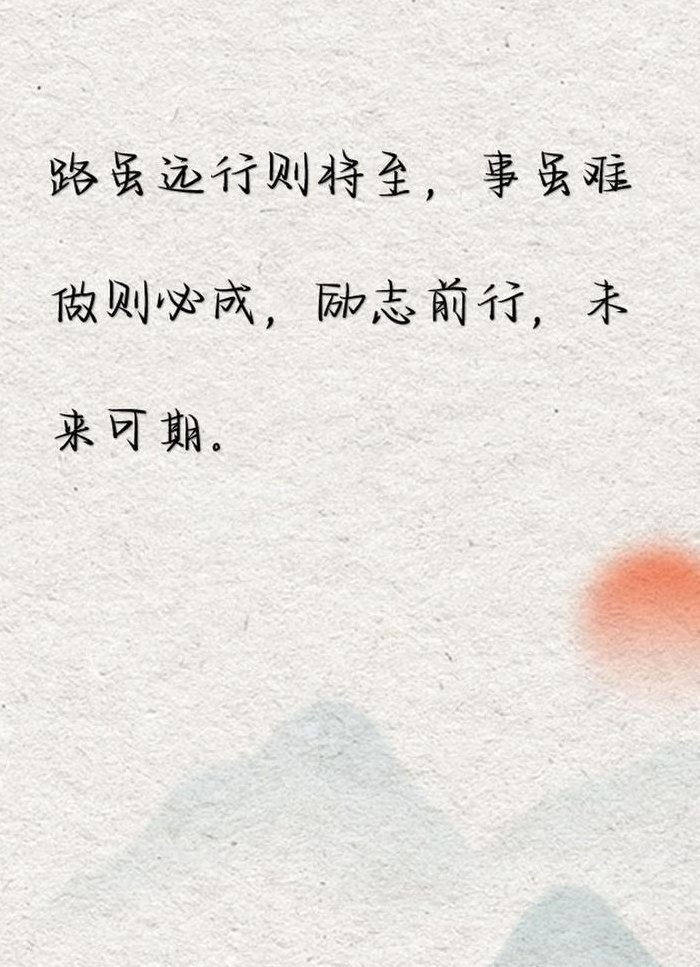 路虽远行则将至，事虽难
做则必成，励志前行，未
来可期。